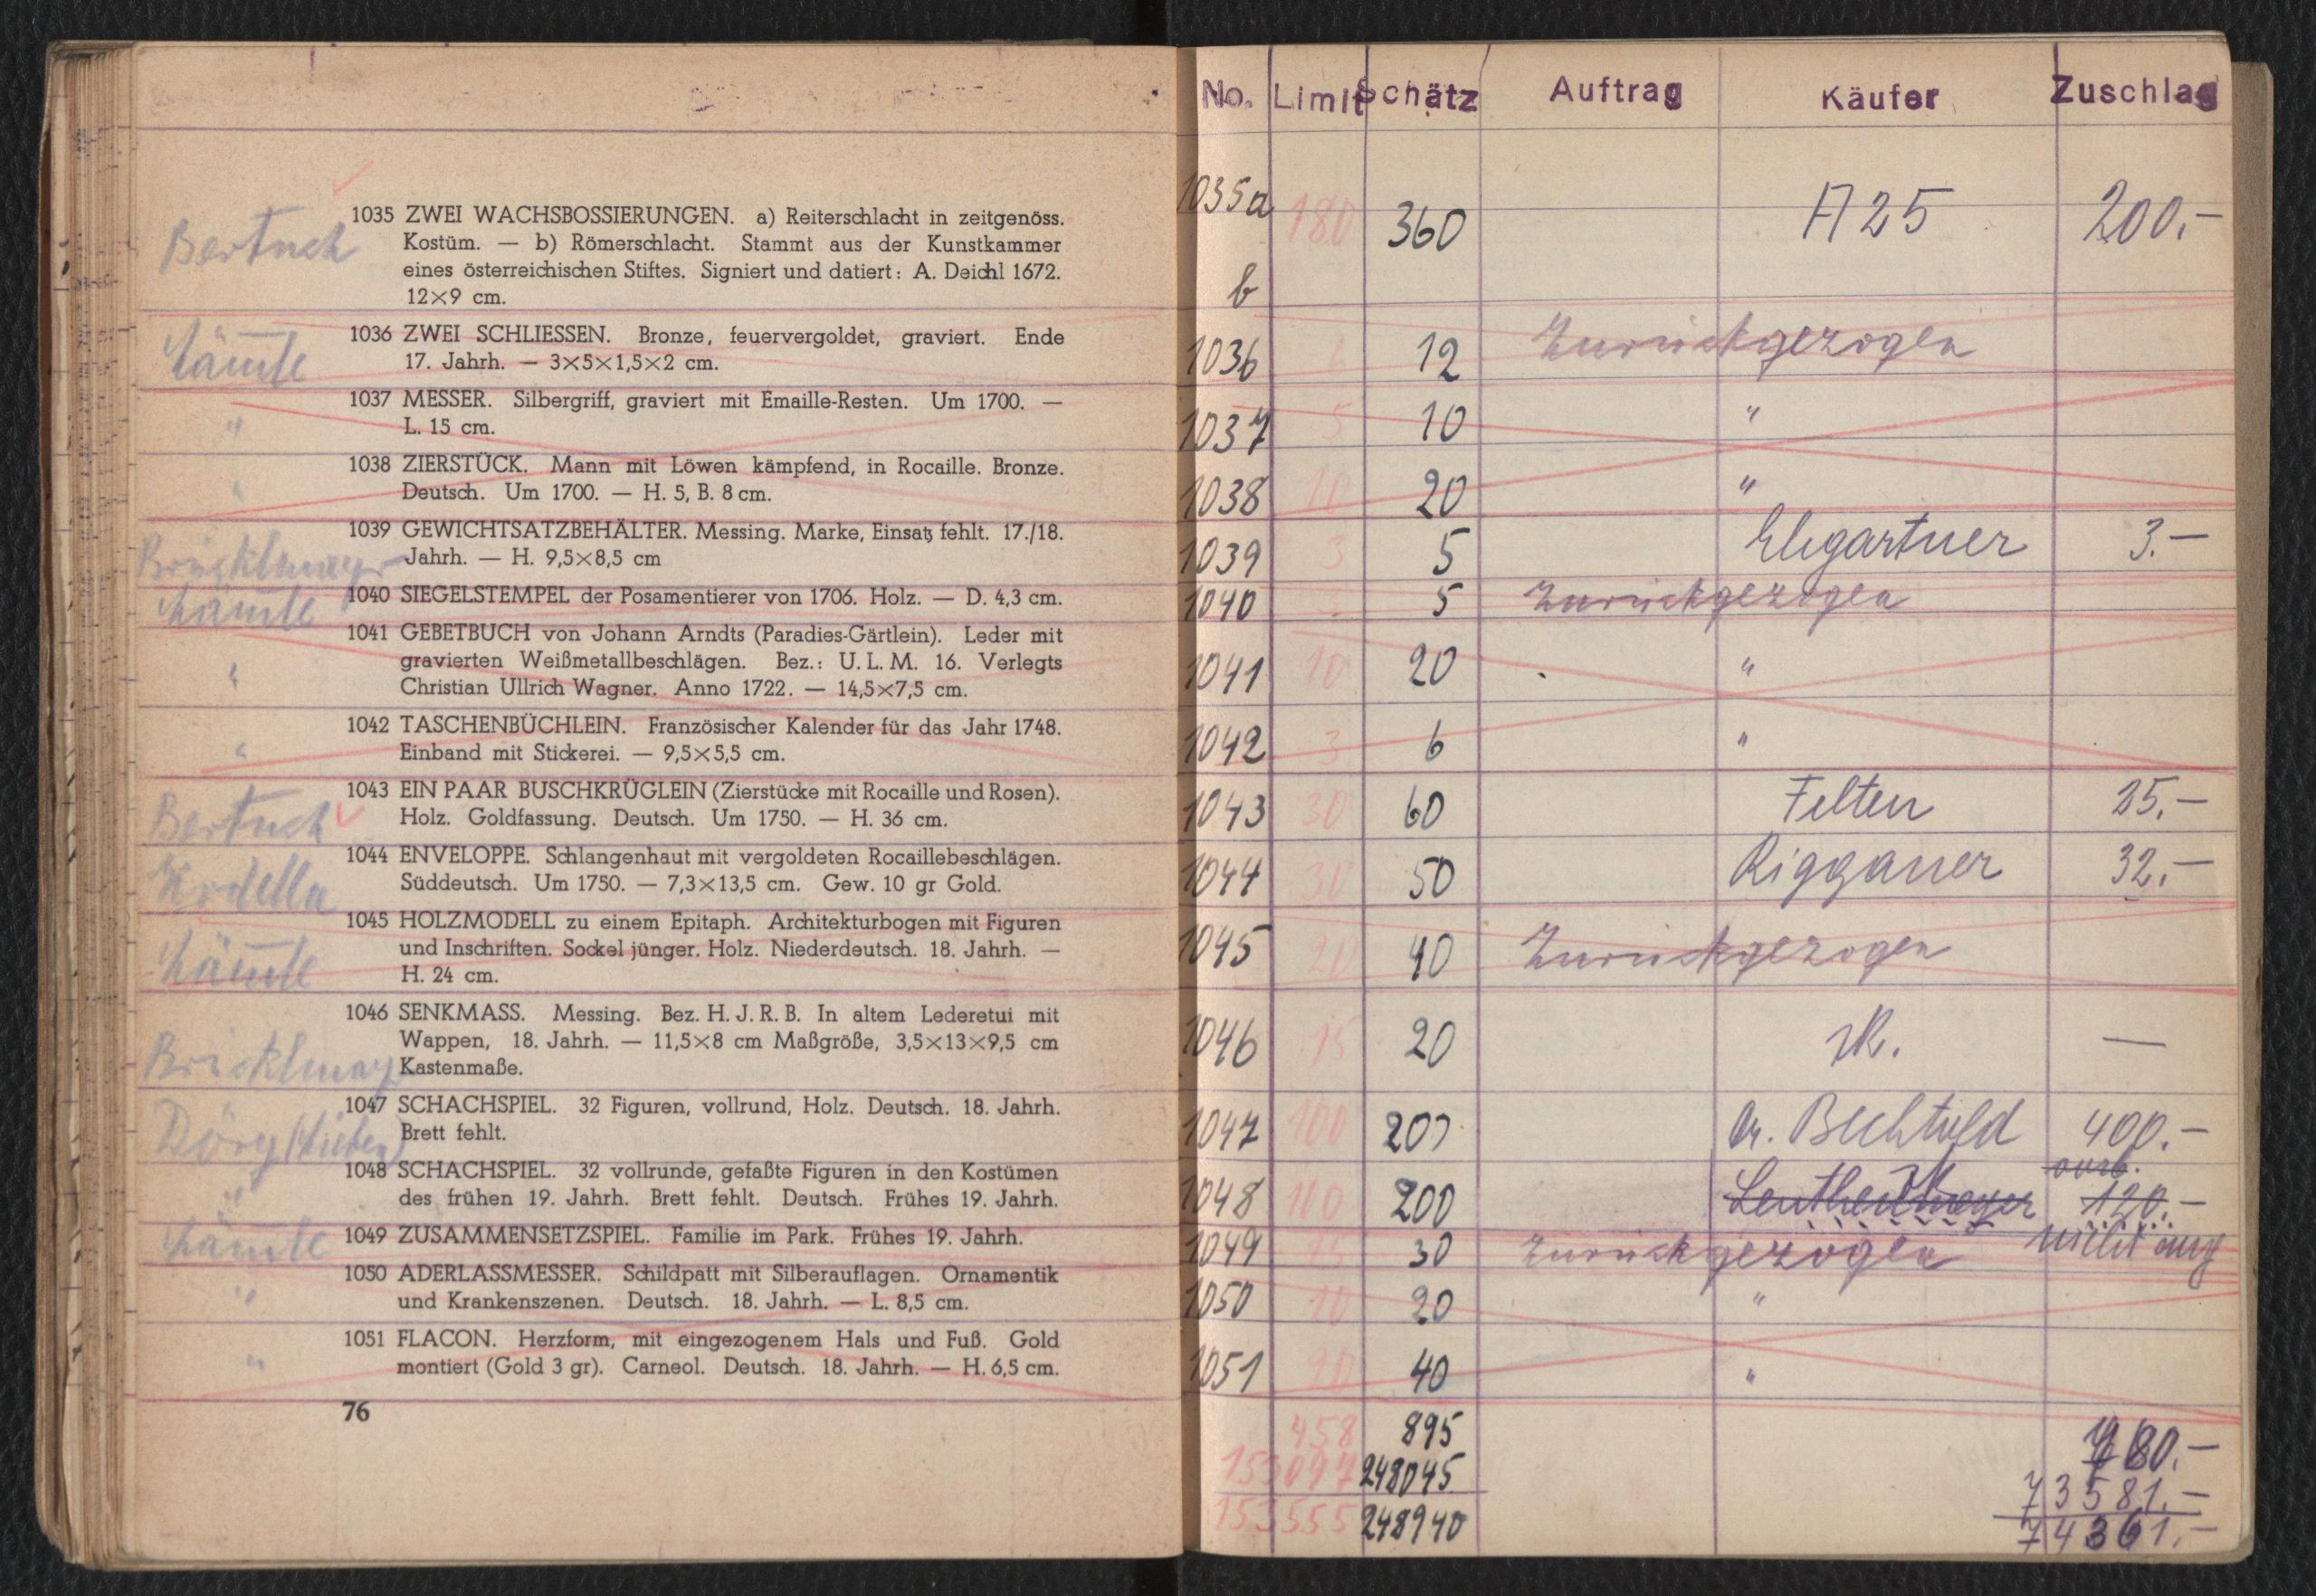 Bertuch
1035 ZWEI WACHSBOSSIERUNGEN. a) Reiterschlacht in zeitgenöss.
Kostüm. — b) Römerschlacht. Stammt aus der Kunstkammer
eines österreichischen Stiftes. Signiert und datiert: A. Deichl 1672.
12×9 cm.
Lämle
1036 ZWEI SCHLIESSEN. Bronze, feuervergoldet, graviert. Ende
17. Jahrh. — 3×5×1,5×2 cm.
"
1037 MESSER. Silbergriff, graviert mit Emaille-Resten. Um 1700. —
L. 15 cm.
"
1038 ZIERSTÜCK. Mann mit Löwen kämpfend, in Rocaille. Bronze.
Deutsch. Um 1700. — H. 5, B. 8 cm.
Brücklmayr
1039 GEWICHTSATZBEHÄLTER. Messing. Marke, Einsatz fehlt. 17./18.
Jahrh. — H. 9,5×8,5 cm
Lämle
1040 SIEGELSTEMPEL der Posamentierer von 1706. Holz. — D. 4,3 cm.
"
1041 GEBETBUCH von Johann Arndts (Paradies-Gärtlein). Leder mit
gravierten Weißmetallbeschlägen. Bez.: U. L. M. 16. Verlegts
Christian Ullrich Wagner. Anno 1722. — 14,5×7,5 cm.
"
1042 TASCHENBÜCHLEIN. Französischer Kalender für das Jahr 1748.
Einband mit Stickerei. — 9,5×5,5 cm.
Bertuch
1043 EIN PAAR BUSCHKRÜGLEIN (Zierstücke mit Rocaille und Rosen).
Holz. Goldfassung. Deutsch. Um 1750. — H. 36 cm.
1044 ENVELOPPE. Schlangenhaut mit vergoldeten Rocaillebeschlägen.
Süddeutsch. Um 1750. — 7,3×13,5 cm. Gew. 10 gr Gold.
Lämle
1045 HOLZMODELL zu einem Epitaph. Architekturbogen mit Figuren
und Inschriften. Sockel jünger. Holz. Niederdeutsch. 18. Jahrh. —
H. 24 cm.
Brücklmayr
1046 SENKMASS. Messing. Bez. H. J. R. B. In altem Lederetui mit
Wappen, 18. Jahrh. — 11,5×8 cm Maßgröße, 3,5×13×9,5 cm
Kastenmaße.
Dörg
1047 SCHACHSPIEL. 32 Figuren, vollrund, Holz. Deutsch. 18. Jahrh.
Brett fehlt.
"
1048 SCHACHSPIEL. 32 vollrunde, gefaßte Figuren in den Kostümen
des frühen 19. Jahrh. Brett fehlt. Deutsch. Frühes 19. Jahrh.
Lämle
1049 ZUSAMMENSETZSPIEL. Familie im Park. Frühes 19. Jahrh.
"
1050 ADERLASSMESSER. Schildpatt mit Silberauflagen. Ornamentik
und Krankenszenen. Deutsch. 18. Jahrh. — L. 8,5 cm.
"
1051 FLACON. Herzform, mit eingezogenem Hals und Fuß. Gold
montiert (Gold 3 gr). Carneol. Deutsch. 18. Jahrh. — H. 6,5 cm.
76
No. Limit Schätz Auftrag Käufer Zuschlag
1035a 180 360 A 25 200.—
b
1036 12 Zurückgezogen
1037 5 10 "
1038 10 20 "
1039 3 5 Ehgartner 3.—
1040 5 Zurückgezogen
1041 10 20 "
1042 3 6 "
1043 30 60 Felten 25.—
1044 30 50 Riggauer 32.—
1045 20 40 Zurückgezogen
1046 15 20 —
1047 100 200 Dr. Bechtold 400.—
1048 200 120.—
1049 30 Zurückgezogen nicht
1050 10 20 "
1051 20 40 "
458 895 780.—
153097 248045 73581.—
153555 248940 74361.—